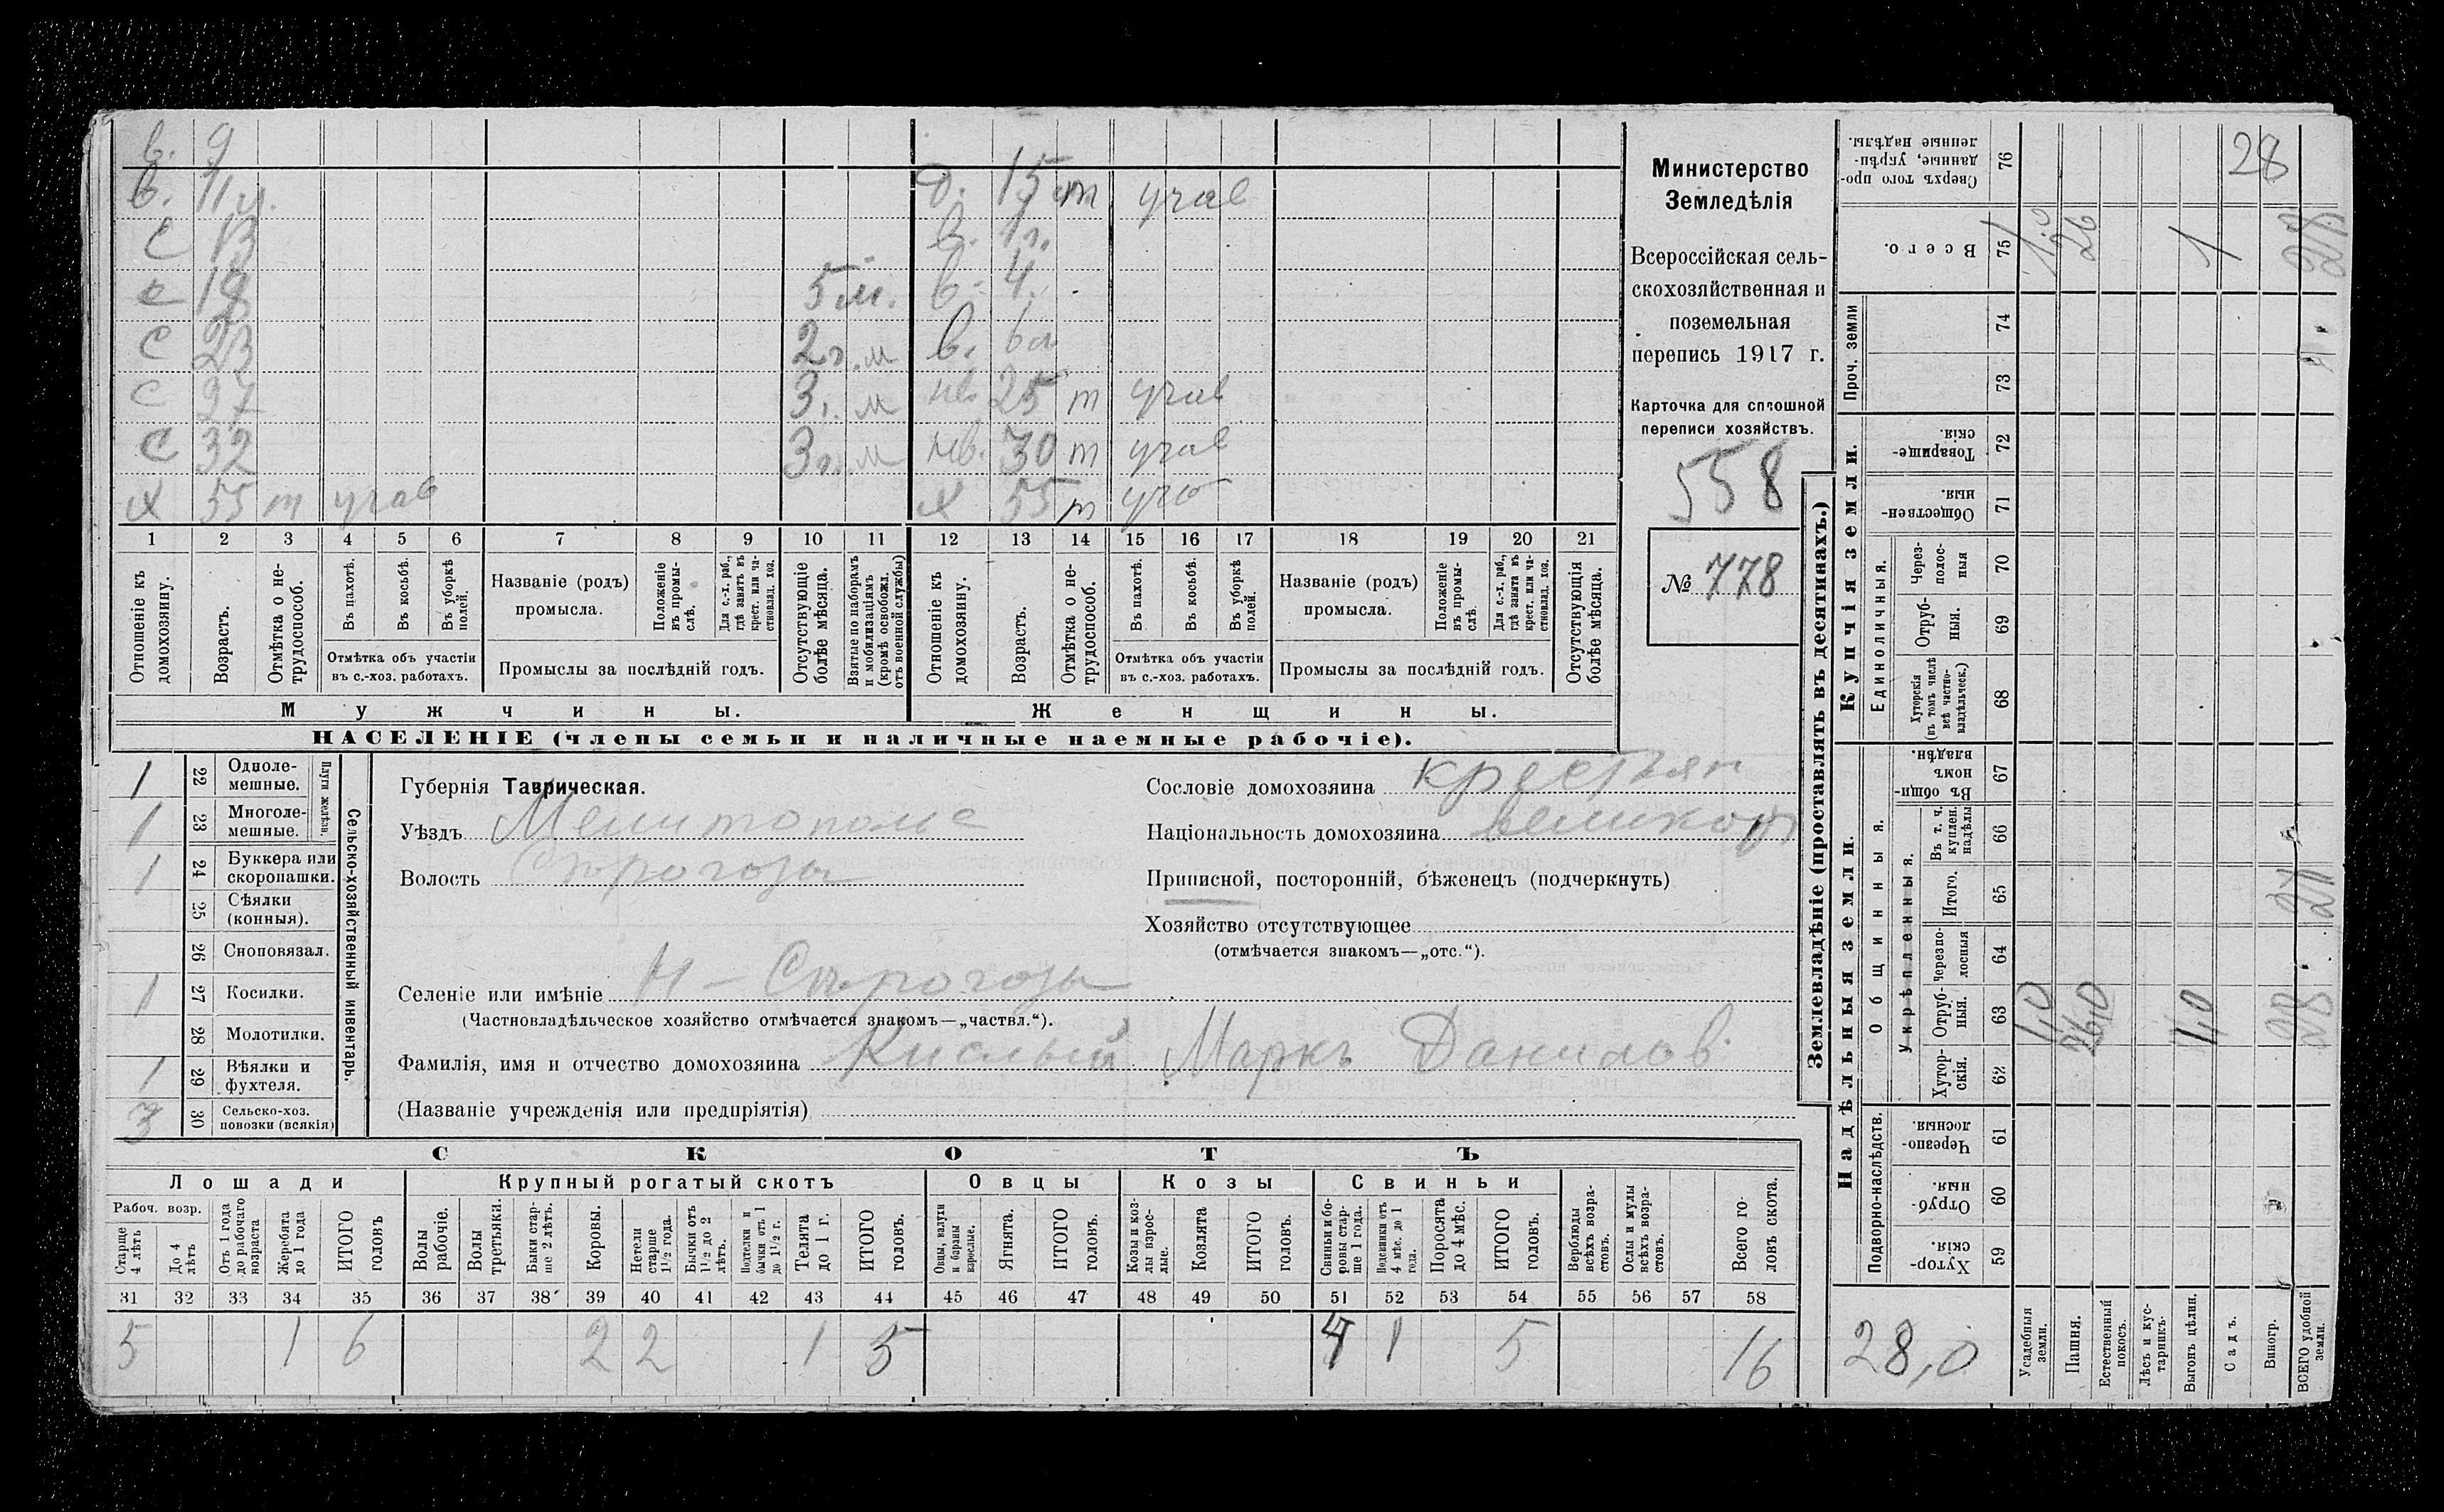 в. 9
в. 11 м.
с 13
с 18 5 м.
с 23 2 г. м
с 27 3 г. м
с 32 3 г. м
х 55 т учав
д. 15 т учав
в. 1 г.
в. 4
в. 6
нв. 25 т учав
нв. 30 т учав
х 55 т
1 2 3 4 5 6 7 8 9 10 11 12 13 14 15 16 17 18 19 20 21
Отношеніе къ домохозяину.
Возрастъ.
Отмѣтка о не-трудоспособ.
Въ пахотѣ.
Въ косьбѣ.
Въ уборкѣ полей.
Отмѣтка объ участіи въ с.-хоз. работахъ.
Названіе (родъ) промысла.
Положеніе въ промы-слѣ.
Для с.-х. раб., гдѣ занятъ въ крест. или ча-стновлад. хоз.
Промыслы за послѣдній годъ.
Отсутствующіе болѣе мѣсяца.
Взятые по наборамъ и мобилизаціямъ (кромѣ освобожд. отъ военной службы)
Отношеніе къ домохозяину.
Возрастъ.
Отмѣтка о не-трудоспособ.
Въ пахотѣ.
Въ косьбѣ.
Въ уборкѣ полей.
Отмѣтка объ участіи въ с.-хоз. работахъ.
Названіе (родъ) промысла.
Положеніе въ промы-слѣ.
Для с.-х. раб., гдѣ занята въ крест. или ча-стновлад. хоз.
Промыслы за послѣдній годъ.
Отсутствующія болѣе мѣсяца.
Мужчины.
Женщины.
НАСЕЛЕНІЕ (члены семьи и наличные наемные рабочіе).
Министерство
Земледѣлія
Всероссійская сель-
скохозяйственная и
поземельная
перепись 1917 г.
Карточка для сплошной
переписи хозяйствъ.
558
№ 778
1 22 Одноле-мешные.
1 23 Многоле-мешные.
Плуги желѣзн.
1 24 Буккера или скоропашки.
25 Сѣялки (конныя).
26 Сноповязал.
1 27 Косилки.
28 Молотилки.
1 29 Вѣялки и фухтеля.
3 30 Сельско-хоз. повозки (всякія)
Сельско-хозяйственный инвентарь.
Губернія Таврическая.
Уѣздъ Мелитопольс
Волость Сѣрогозы
Селеніе или имѣніе Н - Сѣрогозы
(Частновладѣльческое хозяйство отмѣчается знакомъ—„частвл.“).
Фамилія, имя и отчество домохозяина Кислый Маркъ Данилов
(Названіе учрежденія или предпріятія)
Сословіе домохозяина крестьян
Національность домохозяина великор
Приписной, посторонній, бѣженецъ (подчеркнуть)
Хозяйство отсутствующее
(отмѣчается знакомъ—„отс.“).
СКОТЪ
Лошади
Рабоч. возр.
Старше 4 лѣтъ
До 4 лѣтъ
Отъ 1 года до рабочаго возраста
Жеребята до 1 года
ИТОГО головъ
Крупный рогатый скотъ
Волы рабочіе.
Волы третьяки.
Быки стар-ше 2 лѣтъ.
Коровы.
Нетели старше 1½ года.
Бычки отъ 1½ до 2 лѣтъ.
Подтелки и бычки отъ 1 до 1½ г.
Телята до 1 г.
ИТОГО головъ.
Овцы
Овцы, валухи и бараны взрослые.
Ягнята.
ИТОГО головъ.
Козы
Козы и коз-лы взрос-лые.
Козлята
ИТОГО головъ.
Свиньи
Свиньи и бо-ровы стар-ше 1 года.
Подсвинки отъ 4 мѣс. до 1 года.
Поросята до 4 мѣс.
ИТОГО головъ.
Верблюды всѣхъ возра-стовъ.
Ослы и мулы всѣхъ возра-стовъ.
Всего го-ловъ скота.
31 32 33 34 35 36 37 38 39 40 41 42 43 44 45 46 47 48 49 50 51 52 53 54 55 56 57 58
5 1 6 2 2 1 5 4 1 5 16
Землевладѣніе (проставлять въ десятинахъ.)
Надѣльныя земли.
Купчія земли.
Проч. земли
Подворно-наслѣдств.
Общинныя.
Укрѣпленныя.
Единоличныя.
Хутор-скія. 59
Отруб-ныя. 60
Черезпо-лосныя. 61
Хутор-скія. 62
Отруб-ныя. 63
Черезпо-лосныя 64
Итого. 65
Въ т. ч. куплен. надѣлы 66
Въ общи-номъ владѣн. 67
Хуторскія (въ томъ числѣ всѣ частно-владѣльческ.) 68
Отруб-ныя. 69
Через-полос-ныя 70
Обществен-ныя. 71
Товарище-скія. 72
73
74
Всего. 75
Сверхъ того про-данные, укрѣп-ленные надѣлы. 76
28,0
Усадебныя земли. 1,0 1.0
Пашня. 26,0 26
Естественный покосъ.
Лѣсъ и кус-тарникъ.
Выгонъ цѣлин. 1,0 1
Садъ.
Виногр.
ВСЕГО удобной земли. 28 27 28
28